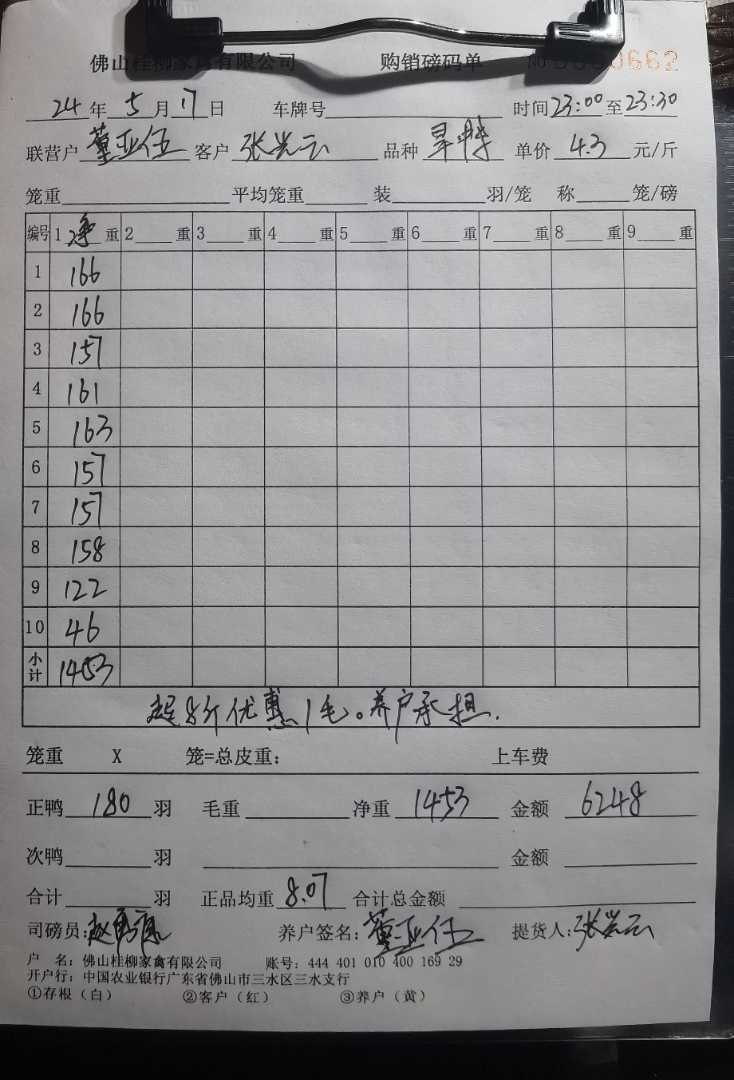 佛山桂柳家禽有限公司 购销磅码单 662
24年5月17日 车牌号 时间23:00至23:30
联营户 董亚伍 客户 张光云 品种 旱鸭 单价 4.3 元/斤
笼重 平均笼重 装 羽/笼 称 笼/磅
编号 1 净 重 2 重 3 重 4 重 5 重 6 重 7 重 8 重 9 重
1 166
2 166
3 157
4 161
5 163
6 157
7 157
8 158
9 122
10 46
小计 1453
超8斤优惠1毛。养户承担.
笼重 X 笼=总皮重: 上车费
正鸭 180 羽 毛重 净重 1453 金额 6248
次鸭 羽 金额
合计 羽 正品均重 8.07 合计总金额
司磅员: 养户签名: 董亚伍 提货人: 张光云
户 名: 佛山桂柳家禽有限公司 账号: 444 401 010 400 169 29
开户行: 中国农业银行广东省佛山市三水区三水支行
①存根(白) ②客户(红) ③养户(黄)